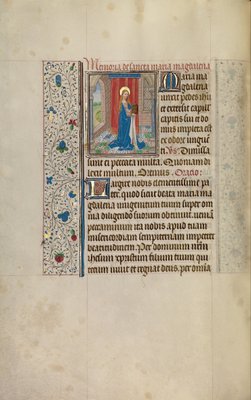 Memoria de sancta maria magdalena
Maria ma
gdalena
unxit pedes ihu
et extersit capil
capitis sui et do
mus impleta est
ex odore unguē
ti. Vs. Dimissa
sunt ei peccata multa. Quoniam di
lexit multum. Oremus. Oracio:
Largire nobis clementissime pa
ter. quod sicut beata maria ma
gdalena unigenitum tuum super om
nia diligendo suorum obtinuit.
peccaminum ita nobis apud tuam
misericordiam sempiternam impetret
beatitudinem. Per dominum nrm
ihesum xpristum filium tuum qui
tecum vivit et regnat deus. per omia